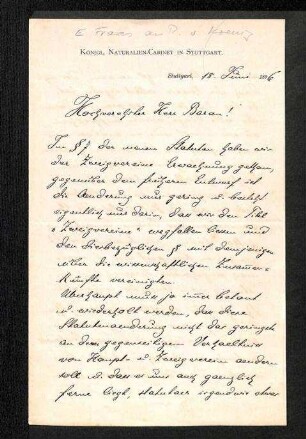 E Fraas an
KÖNIGL. NATURALIEN-CABINET IN STUTTGART.
Stuttgart, 18. Juni 1896
Hochverehrter Herr Baron!
Im § 8 der neuen Statuten haben wir
der Zweigvereine Erwaehnung gethan,
gegenüber dem früheren Entwurf ist
die Aenderung nur gering u. besteht
eigentlich nur darin, das wir den Titel
"Zweigvereine" wegfallen lassen und
den diesbezüglichen § mit demjenigen
über die wissenschaftlichen Zusammen-
künfte vereinigten.
Überhaupt muss ja immer betont
u. wiederholt werden, dass diese
Statutenaenderung nicht das geringste
an dem gegenseitigen Verhaeltniss
von Haupt- u. Zweigverein aendern
soll u. dass es uns auch gaenzlich
ferne liegt, statutar irgendwie etwas